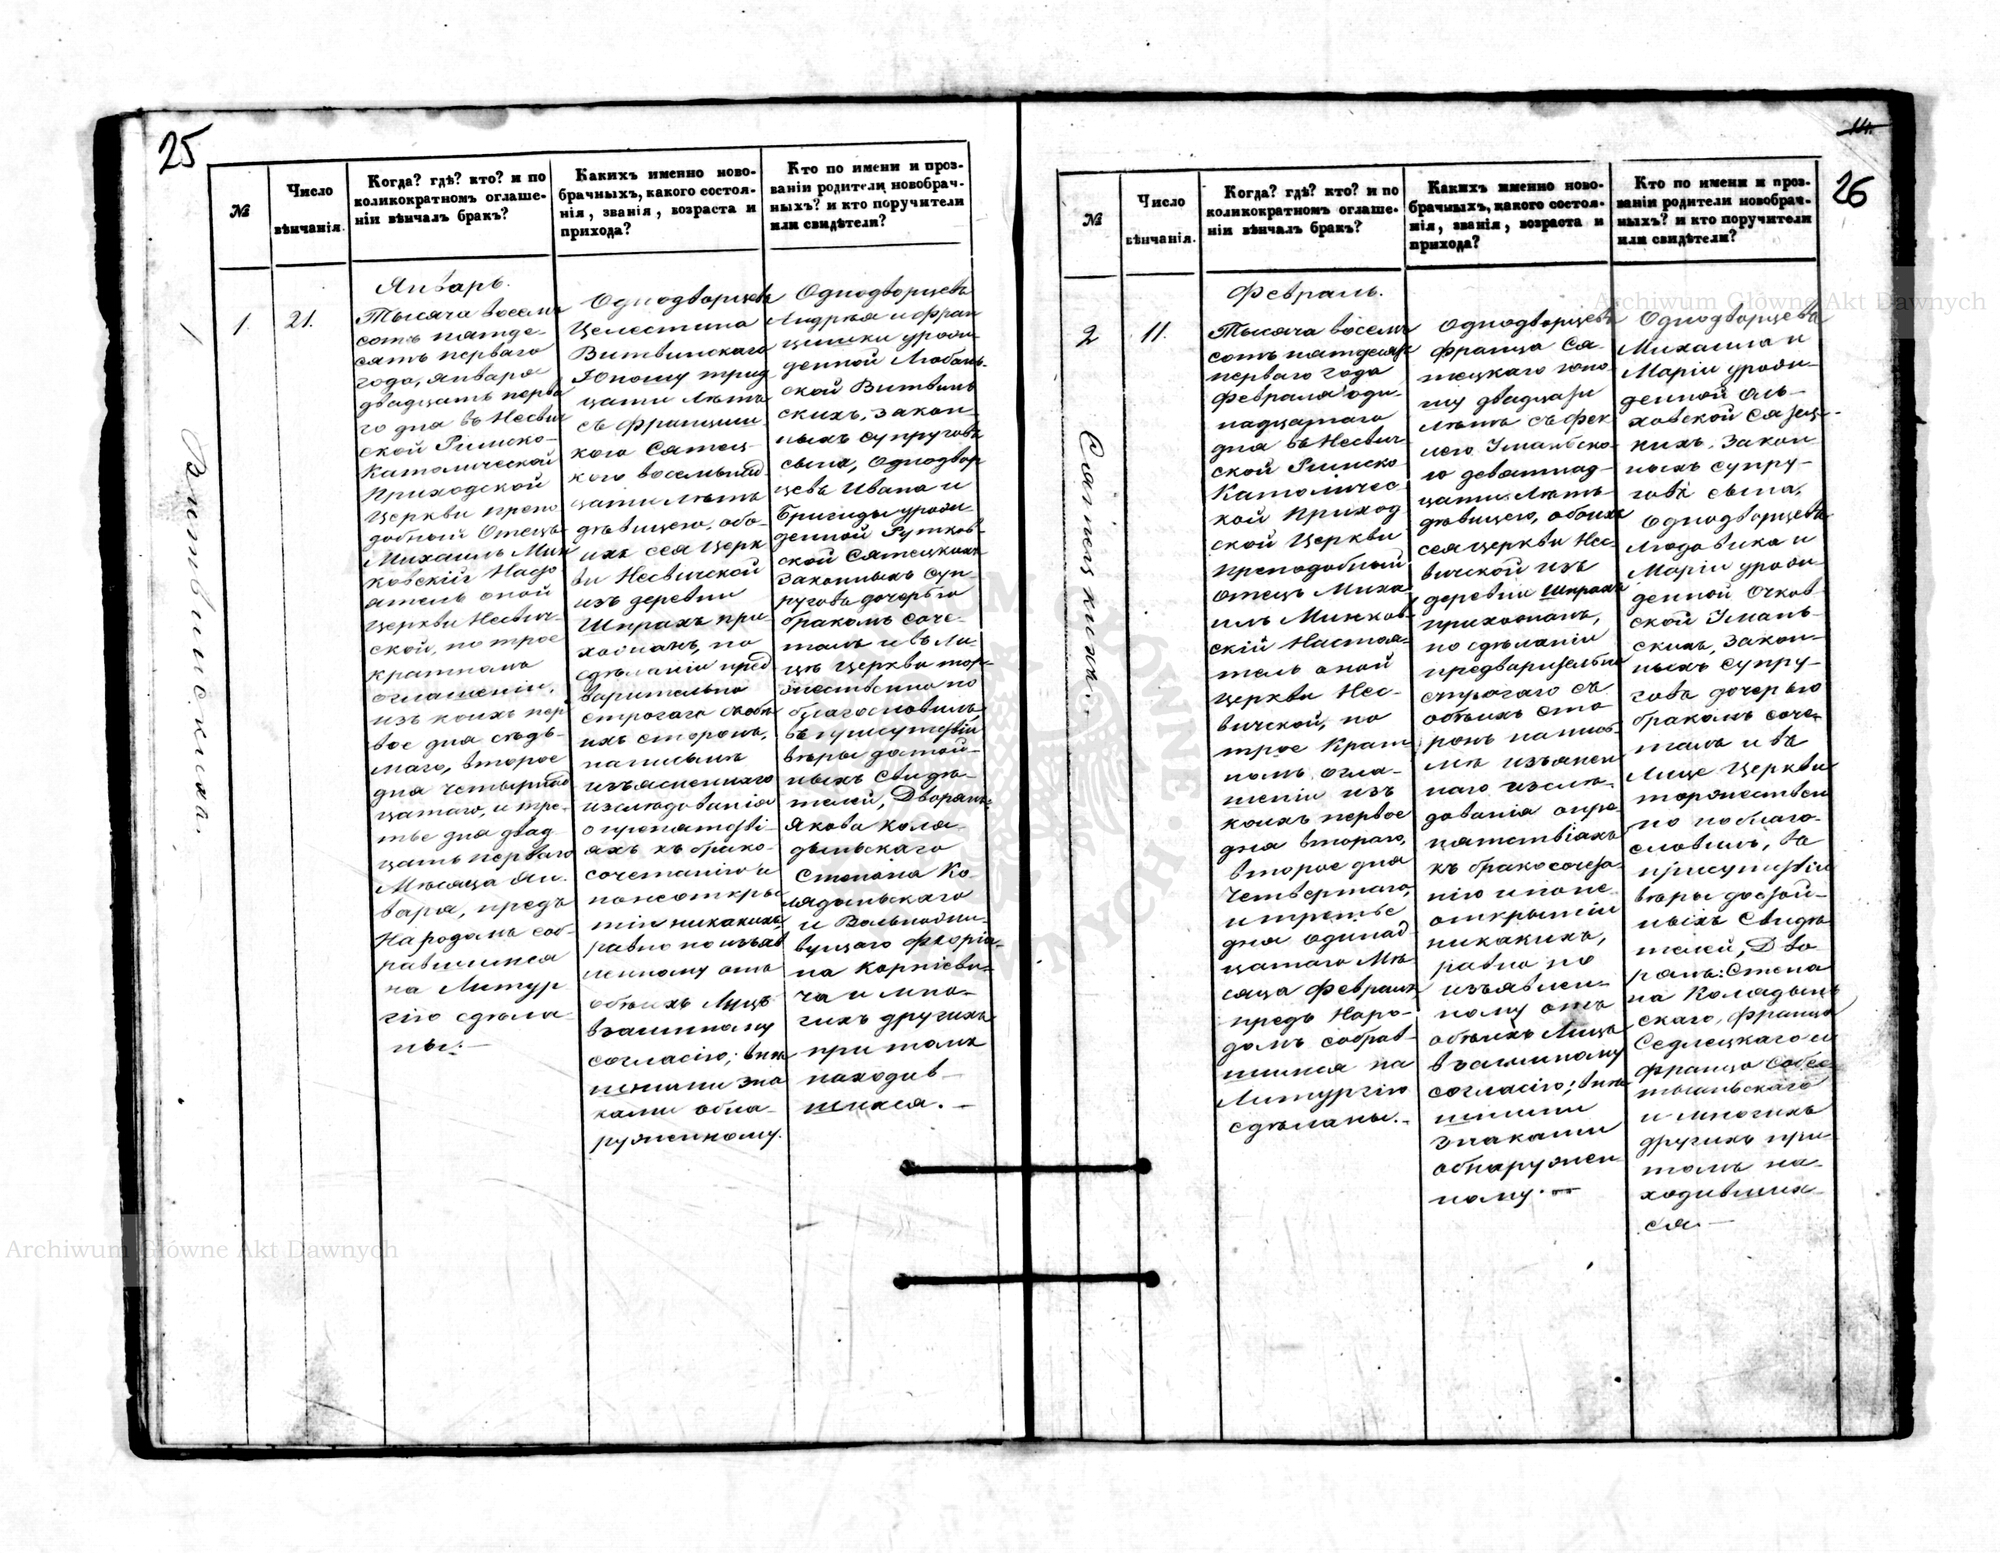 25
№
Число
вѣнчанія.
Когда? гдѣ? кто? и по
коликократномъ оглаше-
ніи вѣнчалъ бракъ?
Какихъ именно ново-
брачныхъ, какого состоя-
нія, званія, возраста и
прихода?
Кто по имени и проз-
ваніи родители новобрач-
ныхъ? и кто поручители
или свидѣтели?
1.
21.
Январь.
Тысяча восемь
сотъ пятде-
сятъ перваго
года, Января
двадцать перва
го дня въ Несвич
ской Римско-
Католической
Приходской
Церкви препо
добный Отецъ
Михаилъ Мин
ковскій Насто
ятель оной
Церкви Несвич-
ской, по трое
кратномъ
оглашеніи,
изъ коихъ пер
вое дня седь-
маго, второе
дня четырнад
цатаго, и тре-
тье дня двад
цать перваго
Мѣсяца Ян-
варя, предъ
Народомъ соб-
равшимся
на Литур
гію сдѣла-
ны.—
Однодворцевъ
Целестина
Витвинскаго
Юношу трид
цати лѣтъ
съ Францишк
кого Сятец-
кого восемьнад
цати лѣтъ
дѣвицею, обо-
ихъ сея Церк
ви Несвичской
изъ деревни
Шпрахъ при
хожанъ, по
сдѣланіи пред
варительно
строгаго съ обѣ
ихъ сторонъ,
написмѣ
изъясненнаго
изслѣдованія
о препятстві-
яхъ къ брако-
сочетанію и
понеоткры
тіи никакихъ,
равно по изъяв
ленному отъ
обѣихъ Лицъ
взаимному
согласію; внѣ
шними зна
ками обна-
руженному.
Однодворцевъ
Андрея и Фран
цишки урожд
денной Любань-
ской Витвин
скихъ, закон-
ныхъ супруговъ
сына, Однодвор
цевъ Ивана и
Бригиды урожд
денной Рутков-
ской Сятецкихъ
законныхъ суп-
руговъ дочерью
бракомъ соче-
талъ и въ Ли-
цѣ Церкви тор-
жественно по
благословилъ
въ присутствіи
вѣры достой-
ныхъ свидѣ-
телей, Дворянъ:
Якова Коля-
дынскаго
Степана Ко-
лядынскаго
и Вольножи-
вущаго Флоріа-
на Корнієви-
ча и мно-
гихъ другихъ
при томъ
находив-
шихся.—
1
Витвинскихъ.
14.
26
№
Число
вѣнчанія.
Когда? гдѣ? кто? и по
коликократномъ оглаше-
ніи вѣнчалъ бракъ?
Какихъ именно ново-
брачныхъ, какого состоя-
нія, званія, возраста и
прихода?
Кто по имени и проз-
ваніи родители новобрач-
ныхъ? и кто поручители
или свидѣтели?
2
11.
Февраль.
Тысяча восемь
сотъ пятдесятъ
перваго года
Февраля оди-
надцатаго
дня въ Несвич-
ской Римско-
Католичес-
кой Приход
ской Церкви
Преподобный
Отецъ Миха
илъ Минков-
скій Настоя-
тель оной
Церкви Нес-
вичской, по
трое крат
номъ огла-
шеніи изъ
коихъ первое
дня втораго,
второе дня
четвертаго,
и третье
дня одинад
цатаго Мѣ-
сяца Февраля
предъ Наро-
домъ собрав-
шимся на
Литургію
сдѣланы.-
Однодворцевъ
Франца Ся-
тецкаго юно
шу двадцати
лѣтъ съ Фек
лею Уманьско-
ю девятнад-
цати лѣтъ
дѣвицею, обоихъ
сея церкви Нес-
вичской изъ
деревни Шпрахъ
прихожанъ,
по сдѣланіи
предварительно
строгаго съ
обѣихъ сто
ронъ написмѣ
изъяснен
наго изслѣ-
дованія о пре-
пятствіяхъ
къ бракосочета-
нію и поне-
открытіи
никакихъ,
равно по
изъявлен-
ному отъ
обѣихъ Лицъ
взаимному
согласію; внѣ
шними
знаками
обнаружен
ному.—
Однодворцевъ
Михаила и
Маріи урожд-
денной Оль-
ховской Сятец-
кихъ, закон-
ныхъ супру-
говъ сына,
Однодворцевъ
Людовика и
Маріи урожд-
денной Очков-
ской Умань-
скихъ, закон-
ныхъ супру-
говъ дочерью
бракомъ соче-
талъ и въ
Лице Церкви
торжествен
но поблаго-
словилъ, въ
присутствіи
вѣры достой-
ныхъ Свидѣ
телей, Дво
рянъ: Степа
на Колядын
скаго, Франца
Седлецкаго и
многихъ
другихъ при
томъ на-
ходивших-
ся.—
Сятецкихъ.
Archiwum Główne Akt Dawnych
Archiwum Główne Akt Dawnych